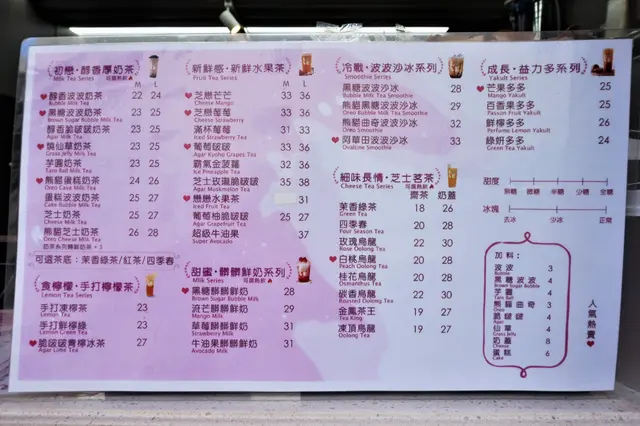 初戀・醇香厚奶茶
Milk Tea Series 可選熱飲
M L
♥醇香波波奶茶 22 24
Bubble Milk Tea
♥黑糖波波奶茶 23 25
Brown Sugar Bubble Milk Tea
醇香脆啵啵奶茶 23 25
Agar Milk Tea
♥燒仙草奶茶 23 25
Grass Jelly Milk Tea
芋圓奶茶 23 25
Taro Ball Milk Tea
♥熊貓蛋糕奶茶 24 26
Oreo Cake Milk Tea
蛋糕波波奶茶 25 27
Cake Bubble Milk Tea
芝士奶茶 25 27
Cheese Milk Tea
熊貓芝士奶茶 26 28
Oreo Cheese Milk Tea
可選茶底：茉香綠茶/紅茶/四季春
食檸檬・手打檸檬茶
Lemon Tea Series
手打凍檸茶 23
Lemon Tea
手打鮮檸綠 23
Lemon Green Tea
♥脆啵啵青檸冰茶 27
Agar Lime Tea
新鮮感・新鮮水果茶
Fruit Tea Series
M L
♥芝戀芒芒 33 36
Cheese Mango
♥芝戀莓莓 33 36
Cheese Strawberry
滿杯莓莓 31 33
Iced Strawberry Tea
♥葡萄啵啵 33 36
Agar Kyoho Grapes Tea
霸氣金菠蘿 32 36
Ice Pineapple Tea
芝士玫瓏脆啵啵 35 38
Agar Muskmelon Tea
♥戀戀水果茶 31
Iced Fruit Tea
葡萄柚脆啵啵 25 27
Agar Grapefruit Tea
超級牛油果 37
Super Avocado
甜蜜・髒髒鮮奶系列
Milk Series
♥黑糖髒髒鮮奶 28
Brown Sugar Bubble Milk
流芒髒髒鮮奶 29
Mango Milk
草莓髒髒鮮奶 31
Strawberry Milk
牛油果髒髒鮮奶 31
Avocado Milk
冷戰・波波沙冰系列
Smoothie Series
黑糖波波沙冰 28
Bubble Milk Tea Smoothie
熊貓黑糖波波沙冰 29
Oreo Bubble Milk Tea Smoothie
熊貓曲奇波波沙冰 32
Oreo Bubble Milk Tea Smoothie
♥阿華田波波沙冰 33
Ovaltine Smoothie
細味長情・芝士茗茶
Cheese Tea Series 可選熱飲
齋茶 奶蓋
茉香綠茶 18 26
Green Tea
四季春 20 28
Four Season Tea
玫瑰烏龍 20 28
Rose Oolong Tea
♥白桃烏龍 20 28
Peach Oolong Tea
桂花烏龍 20 28
Osmanthus Tea
碳香烏龍 22 30
Roasted Oolong Tea
金鳳茶王 19 27
Tea King
凍頂烏龍 19 27
Oolong Tea
成長・益力多系列
Yakult Series
♥芒果多多 25
Mango Yakult
百香果多多 25
Passion Fruit Yakult
鮮檸多多 26
Perfume Lemon Yakult
綠妍多多 24
Green Tea Yakult
甜度
無糖 微糖 半糖 少糖 全糖
冰塊
去冰 少冰 正常
加料：
波波 3
Bubble
黑糖波波 4
Brown Sugar Bubble
芋圓 4
Taro Ball
熊貓曲奇 3
Oreo
脆啵啵 4
Agar
仙草 4
Grass Jelly
奶蓋 8
Cheese
蛋糕 6
Cake
人氣熱賣♥